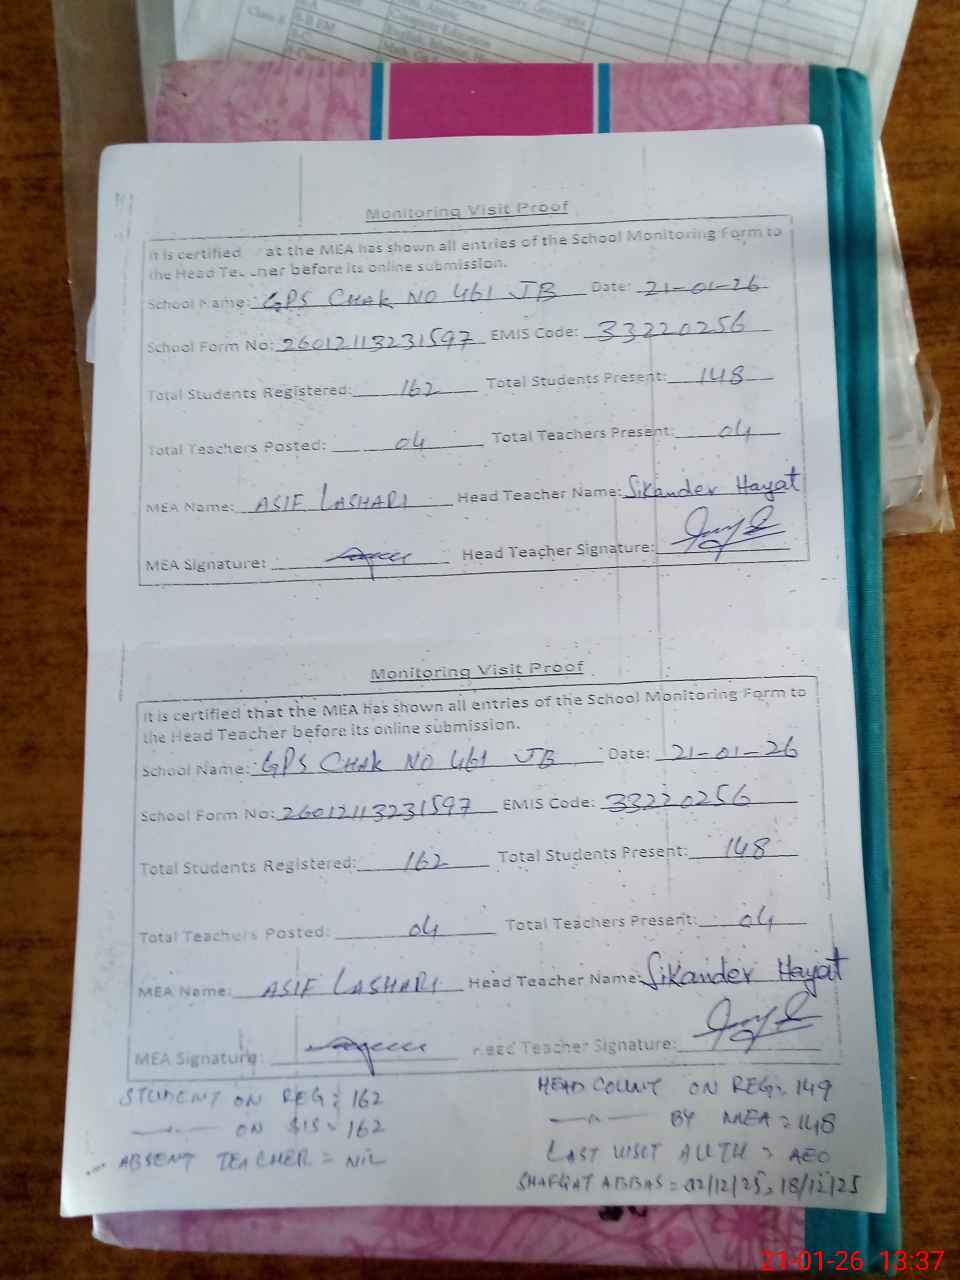 Monitoring Visit Proof
It is certified at the MEA has shown all entries of the School Monitoring Form to
the Head Teacher before its online submission.
School Name: GPS CHAK NO 461 JB Date: 21-01-26
School Form No: 26012113231597 EMIS Code: 33220256
Total Students Registered: 162 Total Students Present: 148
Total Teachers Posted: 04 Total Teachers Present: 04
MEA Name: ASIF LASHARI Head Teacher Name: Sikander Hayat
MEA Signature: Head Teacher Signature:
Monitoring Visit Proof
It is certified that the MEA has shown all entries of the School Monitoring Form to
the Head Teacher before its online submission.
School Name: GPS CHAK NO 461 JB Date: 21-01-26
School Form No: 26012113231597 EMIS Code: 33220256
Total Students Registered: 162 Total Students Present: 148
Total Teachers Posted: 04 Total Teachers Present: 04
MEA Name: ASIF LASHARI Head Teacher Name: Sikander Hayat
MEA Signature: Head Teacher Signature:
STUDENT ON REG: 162 HEAD COUNT ON REG: 149
—〃— ON SIS: 162 —〃— BY MEA = 148
ABSENT TEACHER = NIL LAST VISIT AUTH = AEO
SHAFQAT ABBAS = 02/12/25, 18/12/25
21-01-26 13:37